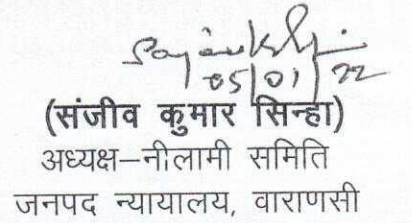 05/01/22
(संजीव कुमार सिन्हा)
अध्यक्ष–नीलामी समिति
जनपद न्यायालय, वाराणसी